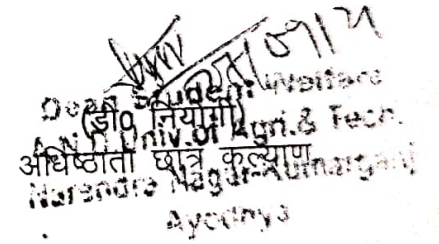 Dean Student Welfare
(डी० नियोगी)
A.N.D. Univ. of Agri. & Tech.
अधिष्ठाता छात्र कल्याण
Narendra Nagar-Kumarganj
Ayodhya